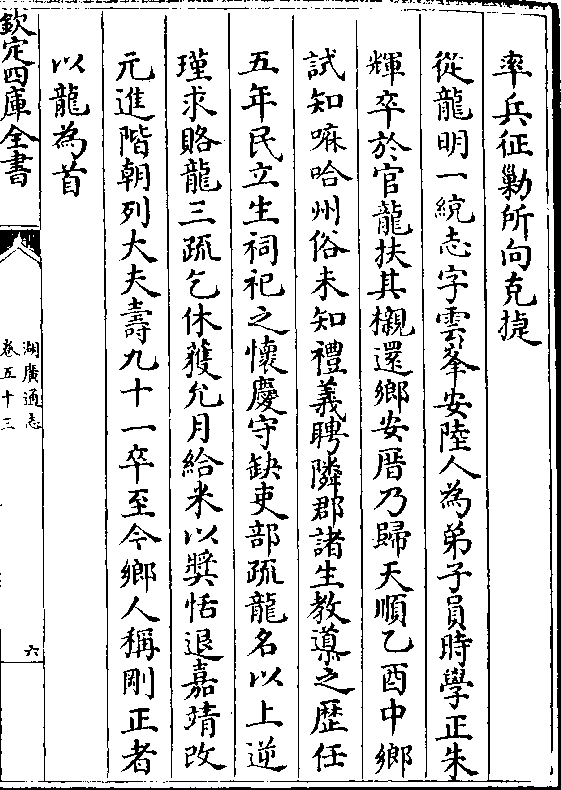 率兵征勦所向克捷
從龍明一統志字雲峯安陸人為弟子員時學正朱
輝卒於官龍扶其櫬還鄉安厝乃歸天順乙酉中鄉
試知嘛哈州俗未知禮義聘隣郡諸生教導之歷任
五年民立生祠祀之懷慶守缺吏部疏龍名以上逆
瑾求賂龍三疏乞休獲允月給米以奬恬退嘉靖改
元進階朝列大夫壽九十一卒至今鄉人稱剛正者
以龍為首
欽定四庫全書
湖廣通志
卷五十三
六